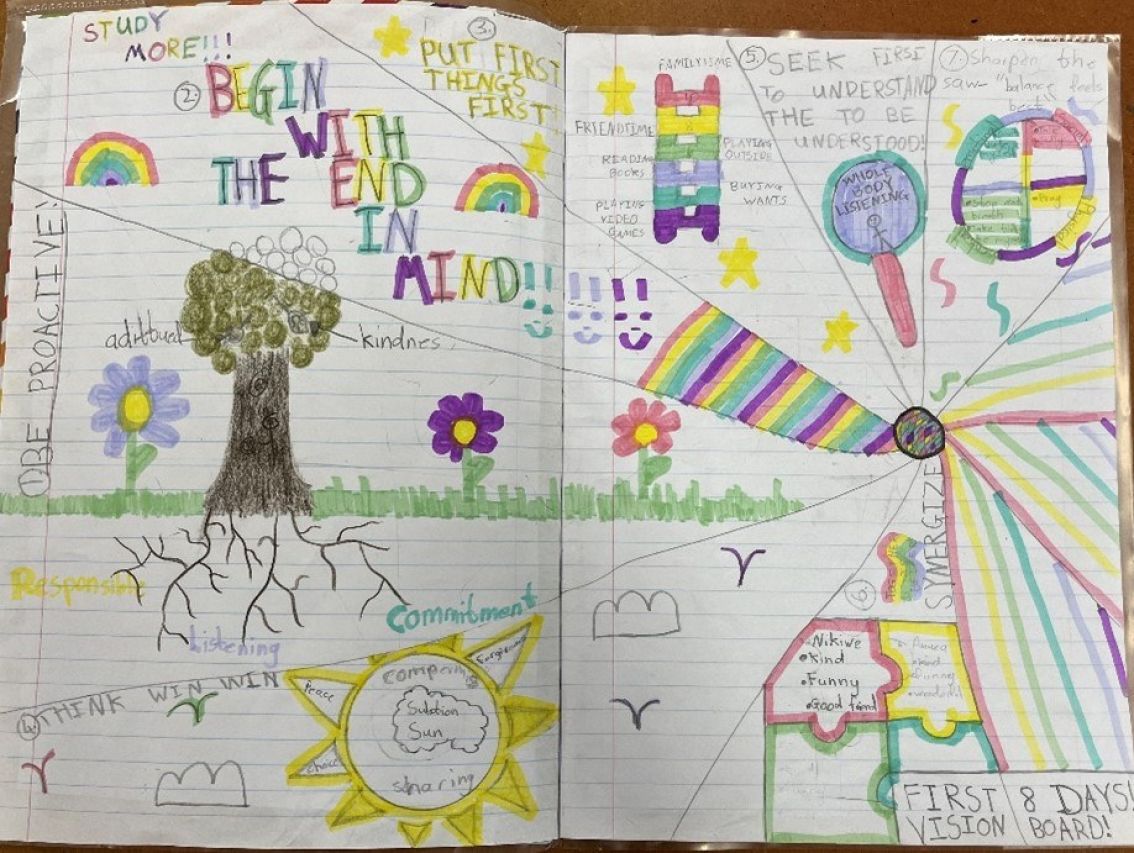 STUDY
MORE!!!
② BEGIN
WITH
THE END
IN
MIND!!
3.
PUT FIRST
THINGS
FIRST
① BE PROACTIVE!
kindnes
Responsible
Listening
Commitment
4. THINK WIN WIN
Peace
Forgiveness
choice
Solution
Sun
sharing
FAMILYTIME
FRIENDTIME
PLAYING
OUTSIDE
READING
BOOKS
BUYING
WANTS
PLAYING
VIDEO
GAMES
5. SEEK FIRST
TO UNDERSTAND
THE TO BE
UNDERSTOOD!
WHOLE
BODY
LISTENING
7. Sharpen the
saw- "balance feels
best"
Physical
6. SYNERGIZE
Nikiwe
•Kind
•Funny
•Good friend
FIRST 8 DAYS!
VISION BOARD!